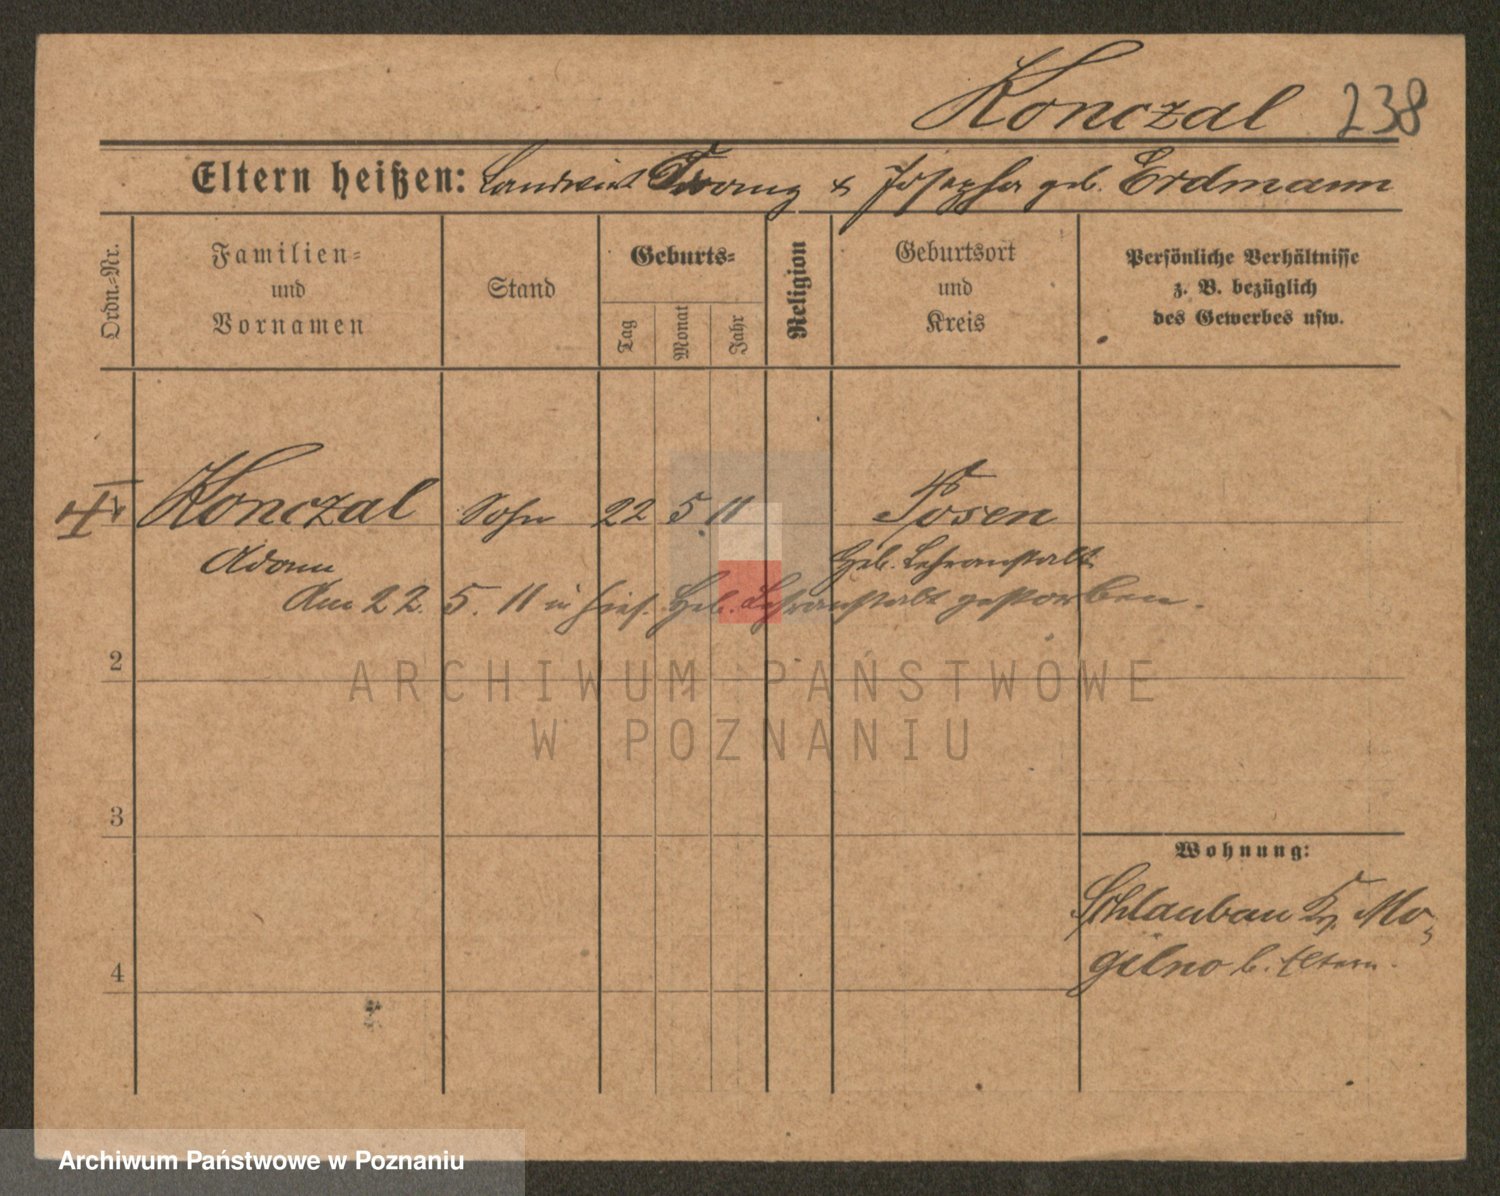 Konczal 238
Eltern heißen: Landwirt Franz & Josepha geb. Erdmann
Ordn.-Nr.
Familien-
und
Vornamen
Stand
Geburts-
Tag
Monat
Jahr
Religion
Geburtsort
und
Kreis
Persönliche Verhältnisse
z. B. bezüglich
des Gewerbes usw.
Konczal Sohn 22 5 11 Posen
Adam Heb. Lehranstalt
Am 22. 5. 11 in hies. Heb. Lehranstalt gestorben.
2
ARCHIWUM PAŃSTWOWE
W POZNANIU
3
Wohnung:
Schlauban Kr. Mo-
gilno b. Eltern.
4
Archiwum Państwowe w Poznaniu